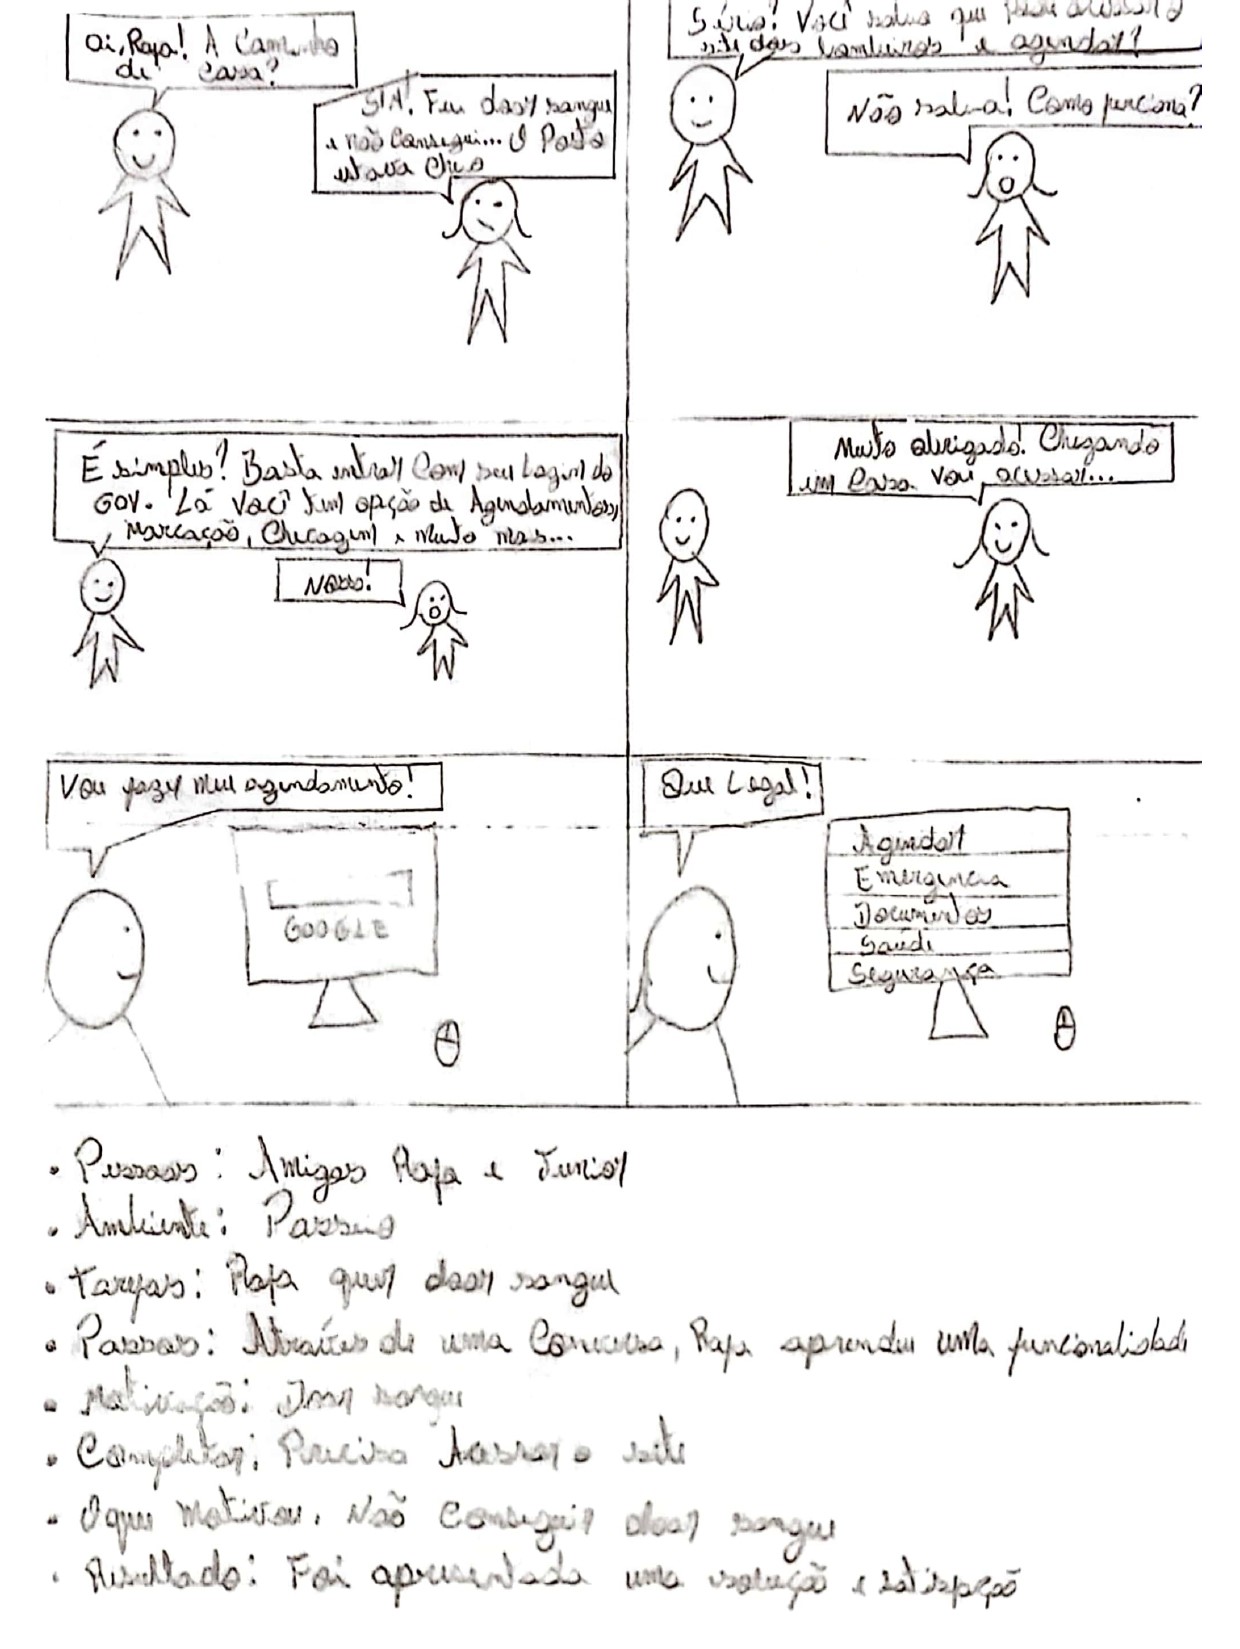 Oi, Rafa! A Caminho
de casa?
SIM! Fui doar sangue
e não consegui... O Posto
estava cheio
Sério! Você sabia que pode acessar o
site dos bombeiros e agendar?
Não sabia! Como funciona?
É simples? Basta entrar com seu Login do
GOV. Lá você tem opção de Agendamentos,
Marcação, Checagem e muito mais...
Nossa!
Muito obrigado! Chegando
em casa vou acessar...
Vou fazer meu agendamento!
GOOGLE
Que Legal!
Agendar
Emergência
Documentos
Saúde
Segurança
• Pessoas: Amigos Rafa e Junior
• Ambiente: Passeio
• Tarefas: Rafa quer doar sangue
• Passos: Através de uma Conversa, Rafa aprendeu uma funcionalidade
• Motivação: Doar sangue
• Completar: Precisa Acessar o site
• O que Motivou. Não Conseguir doar sangue
• Resultado: Foi apresentada uma solução e satisfação